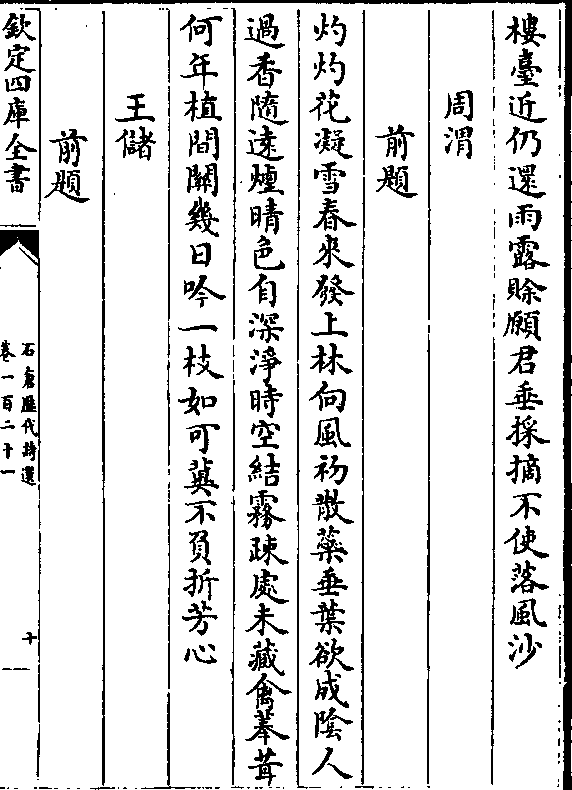 樓臺近仍還雨露賒願君垂採摘不使落風沙
周渭
前題
灼灼花凝雪春來發上林向風初散蘂垂葉欲成陰人
過香隨遠煙晴色自深淨時空結霧疎處未藏禽菶茸
何年植間關幾日吟一枝如可冀不負折芳心
王儲
前題
欽定四庫全書
石倉歷代詩選
卷一百二十一
十